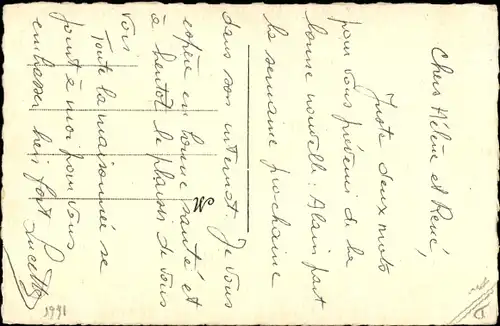 Chers Hélène et René,
Juste deux mots
pour vous prévenir de la
bonne nouvelle : Alain part
la semaine prochaine
dans son internat. Je vous
espère en bonne santé et
à bentôt le plaisir de vous
voir
Toute la maisonnée se
joint à moi pour vous
embrasser bien fort Lucette
M